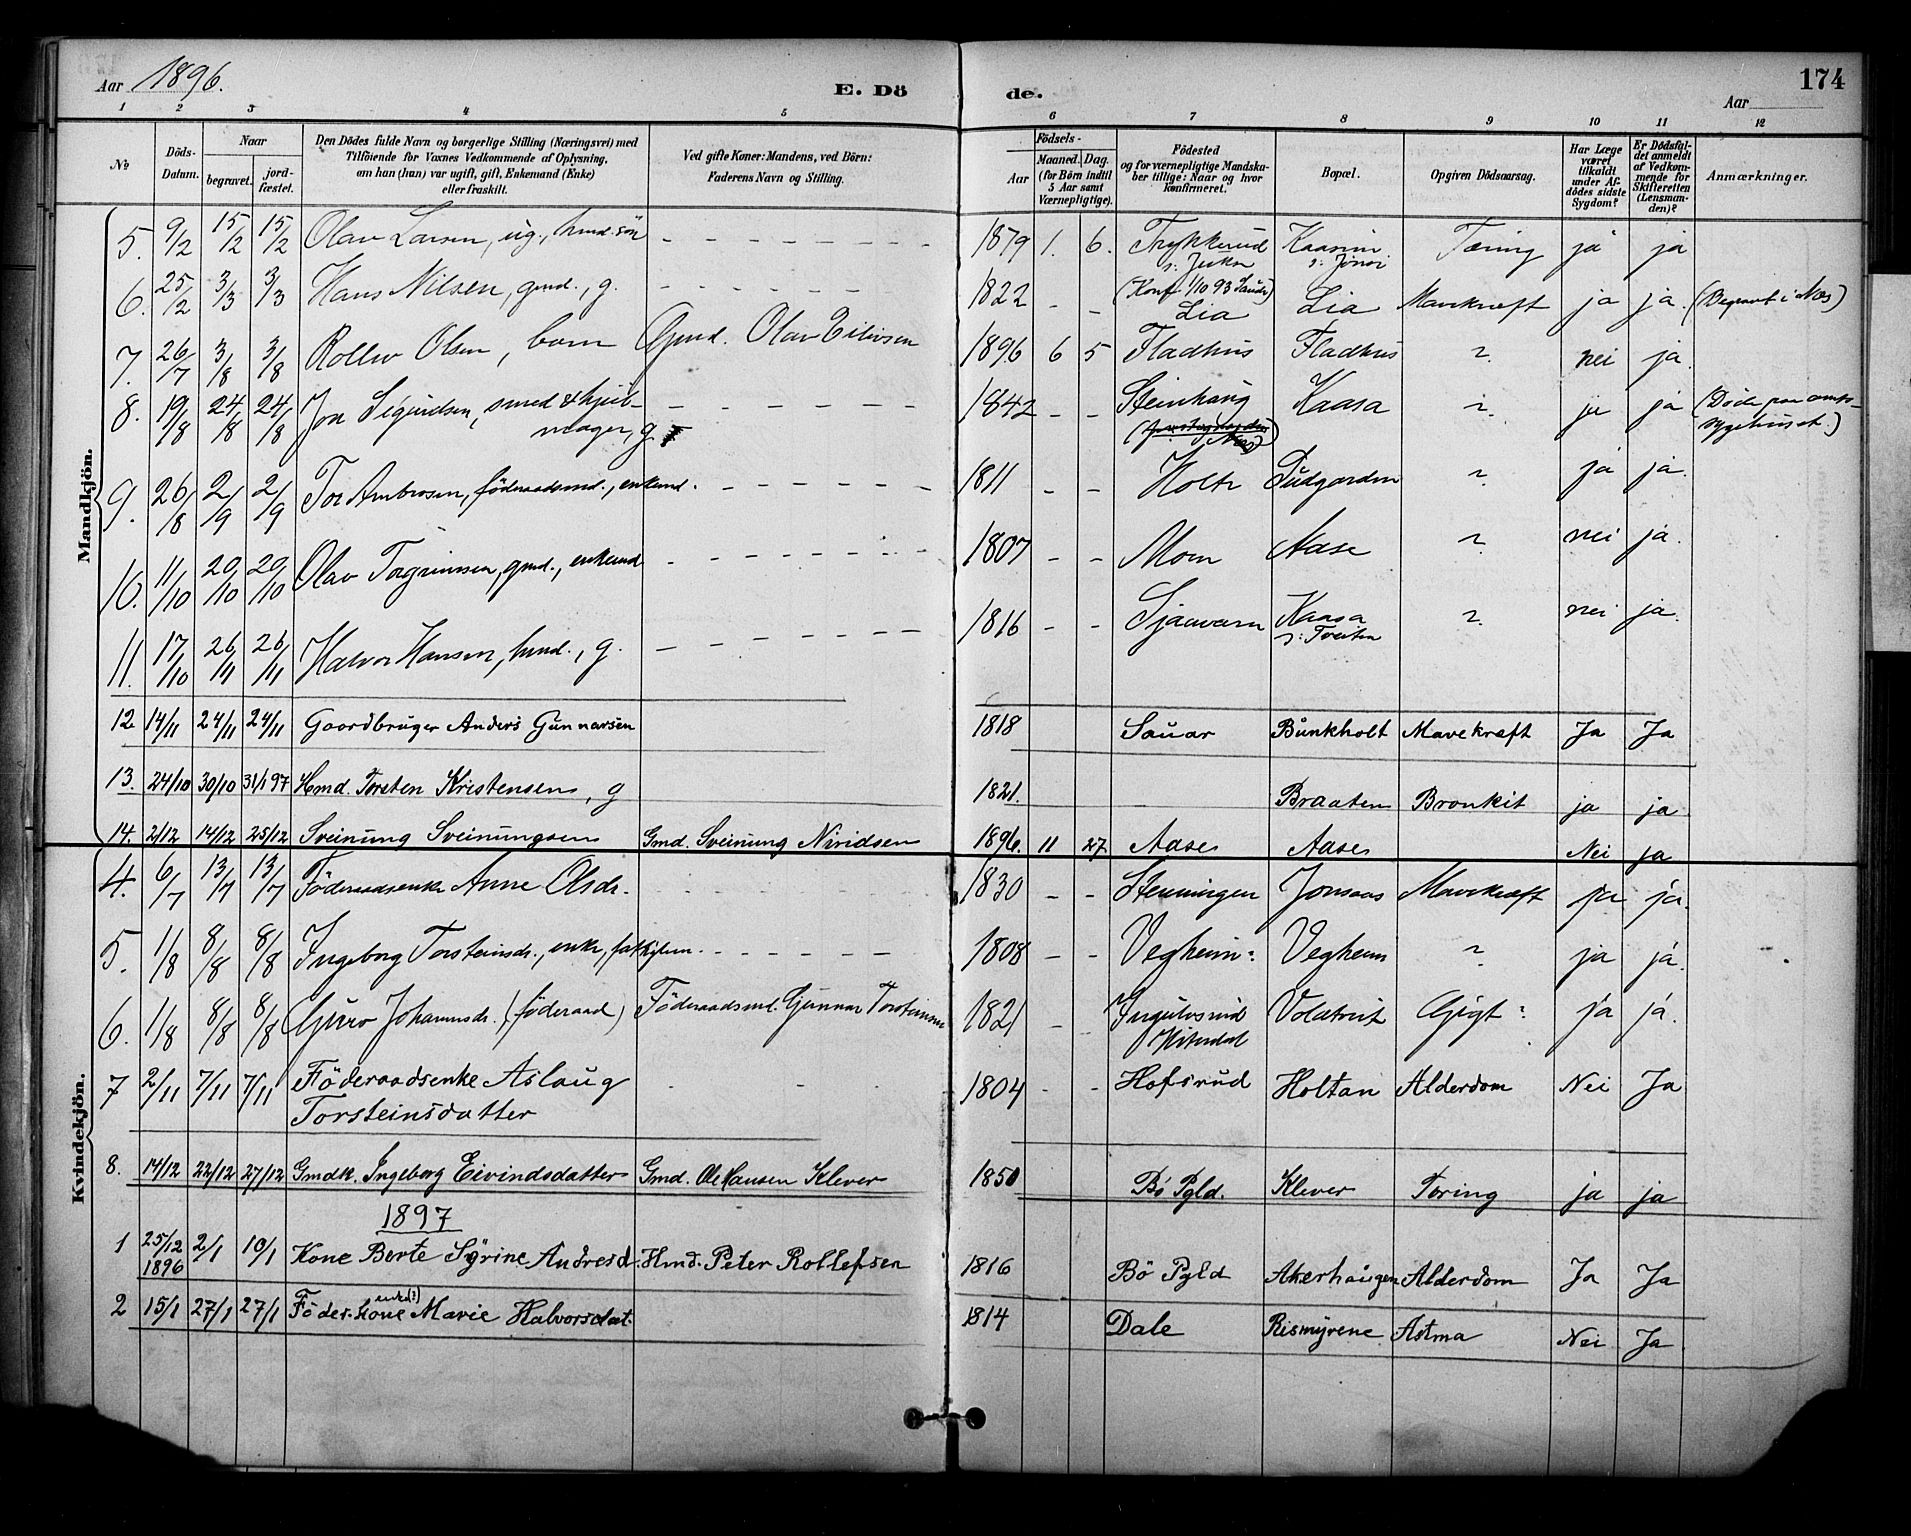 Aar 1896. E. Dö de. Aar 174
1 2 3 4 5 6 7 8 9 10 11 12
No Döds-Datum. Naar begravet. jord-fæstet. Den Dödes fulde Navn og borgerlige Stilling (Næringsvei) med Tilföiende for Voxnes Vedkommende af Oplysning, om han (hun) var ugift, gift, Enkemand (Enke) eller fraskilt. Ved gifte Koner: Mandens, ved Börn: Faderens Navn og Stilling. Födsels- Aar Maaned. Dag. (for Börn indtil 5 Aar samt Værnepligtige). Födested og for værnepligtige Mandskaber tillige: Naar og hvor Konfirmeret. Bopæl. Opgiven Dödsaarsag. Har Læge været tilkaldt under Afdödes sidste Sygdom? Er Dödsfaldet anmeldt af Vedkommende for Skifteretten (Lensmanden)? Anmærkninger.
Mandkjön.
5. 9/2 15/2 15/2 Olav Larsen, ug., hmd. sön 1879 1. 6. Trykkerud Kaasin Tæring ja ja
(Konf. 1/10 93 Sauar)
6. 25/2 3/3 3/3 Hans Nilsen, gmd., g. 1822 - - Lia Lia Mavekræft ja ja. (Begravet i Næs)
7. 26/7 3/8 3/8 Rollev Olsen, barn Gmd. Olav Eilivsen 1896 6 5 Fladhus Fladhus ?. nei ja.
8. 19/8 24/8 24/8 Jon Sigurdsen, smed & hjul- 1842 - - Steinhaug Kaasa ?. ja ja (Döde paa amts-
mager, g. sygehuset.)
9. 26/8 2/9 2/9 Tor Ambrosen, föderaadsmd., enkemd. 1811 - - Holte Sudgarden ?. ja ja.
10. 11/10 20/10 20/10 Olav Torgrimsen, gmd., enkemd 1807 - - Moen Aase ?. nei ja.
11. 17/10 26/11 26/11 Halvor Hansen, hmd., g. 1816 - - Sjaavarn Kaasa ?. nei ja.
12 14/11 24/11 24/11 Gaardbruger Anders Gunnarsen 1818 Sauar Bunkholt Mavekræft Ja Ja
13. 24/10 30/10 31/1 97 Hmd. Torsten Kristensen, g 1821. Braaten Bronkit ja ja.
14. 2/12 14/12 25/12 Sveinung Sveinungsen Gmd. Sveinung Niridsen 1896. 11 27 Aase Aase Nei ja
Kvindekjön.
4. 6/7 13/7 13/7 Föderaadsenke Anne Olsdr. 1830 - - Stenningen Jonsaas Mavekræft ja ja.
5. 1/8 8/8 8/8 Ingeborg Torsteinsdr., enke, fattiglem. 1808 - - Vegheim Vegheim ?. ja ja.
6. 1/8 8/8 8/8 Guro Johannsdr. (föderaad) Föderaadsmd. Gunnar Torsteinsen 1821 - Ingulvsrud Gigt ja ja.
Hiterdal
7 2/11 7/11 7/11 Föderaadsenke Aslaug 1804 - - Hofsrud Holtan Alderdom Nei Ja
Torsteinsdatter
8. 14/12 22/12 27/12 Gmdk. Ingeborg Eivindsdatter Gmd. Ole Hansen Klever 1850 Bö Pgld. Klever Tæring ja ja
1897
1 25/12 1896 2/1 10/1 Kone Berte Syrine Andresd. Hmd. Peter Rollefsen 1816 Bö Pgld Akerhaugen Alderdom Ja Ja
2 15/1 27/1 27/1 Föder. kone enke(?) Marie Halvorsdat. 1814 Dale Rismyrene Astma Nei Ja